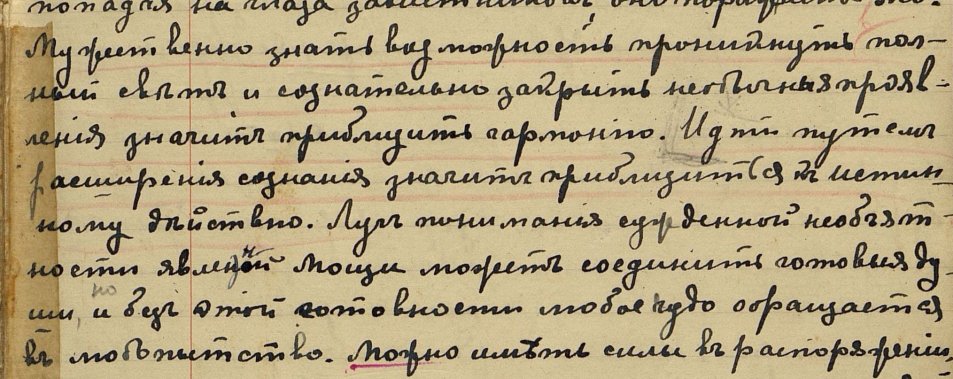 попадая на глаза завистниковъ,
Мужественно знать возможность проникнуть пол-
ный свѣтъ и сознательно закрыть необычныя прояв-
ленія значитъ приблизить гармонію. Идти путемъ
расширенія сознанія значитъ приблизиться къ истин-
ному дѣйствію. Лучъ пониманія сужденной необъят-
ности явленной Мощи можетъ соединить готовыя ду-
ши, но и безъ этой готовности любое чудо обращается
въ любопытство. Можно имѣть силы въ распоряженіи,